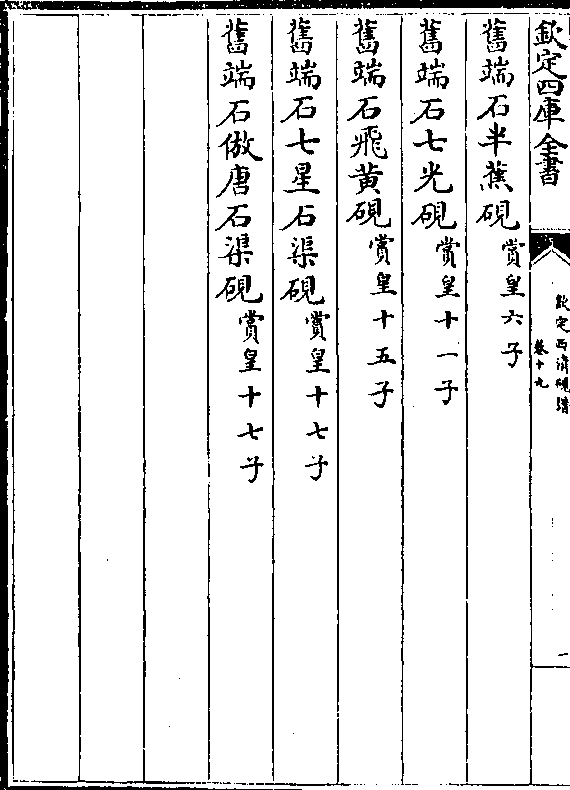 欽定四庫全書
欽定西清硯譜
卷十九
一
舊端石半蕉硯賞皇六子
舊端石七光硯賞皇十一子
舊端石飛黃硯賞皇十五子
舊端石七星石渠硯賞皇十七子
舊端石倣唐石渠硯賞皇十七子